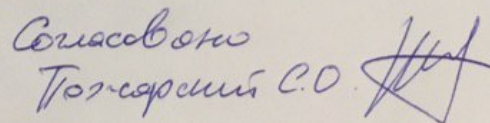 Согласовано
Пожарский С.О.